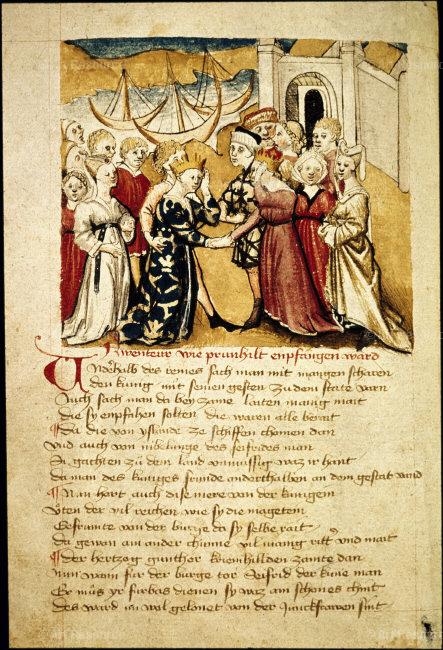 Awenteur wie prunhilt enpfangen ward
Anderhalb des reines sach man mit manigen scharen
den kunig mit seinen gesten zu dem state varn
Auch sach man da bey zame laiten manig mait
die sy enpfahen solten die waren alle berait
Da die von yslande ze schiffen chomen dan
vnd auch von nibelunge des seifrides man
Si gachten zu dem land vnmussig waz ir hant
da man des kuniges frunde anderthalben an dem gestat vand
Nun hort auch dise mere von der kunigein
Vten der vil reichen wie sy die magetein
Gefrumte von der burge da sy selbe rait
da gewan ain ander chunne vil manig ritter vnd mait
der hertzog gunther krienhillden zamte dan
nun wann für der burge tor Seifrid der kune man
Er müs yr fürbas dienen sy waz ain schones chint
des ward im wol gelonet von der Junckfrawen sint